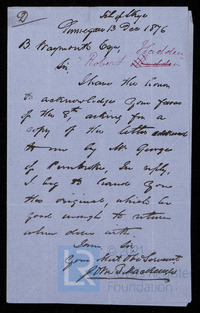 Isle of Skye
Dunvegan 13 Dec 1876
B Waymouth Esq,
Robert Hadden
Sir
I have the honor
to acknowledge your favor
of the 8th asking for a
copy of the letter addressed
to me by Mr George
of Pembroke, In reply,
I beg to hand you
the original, which be
good enough to return
when done with.
I am Sir
Your Most Obt Servant
Foundation